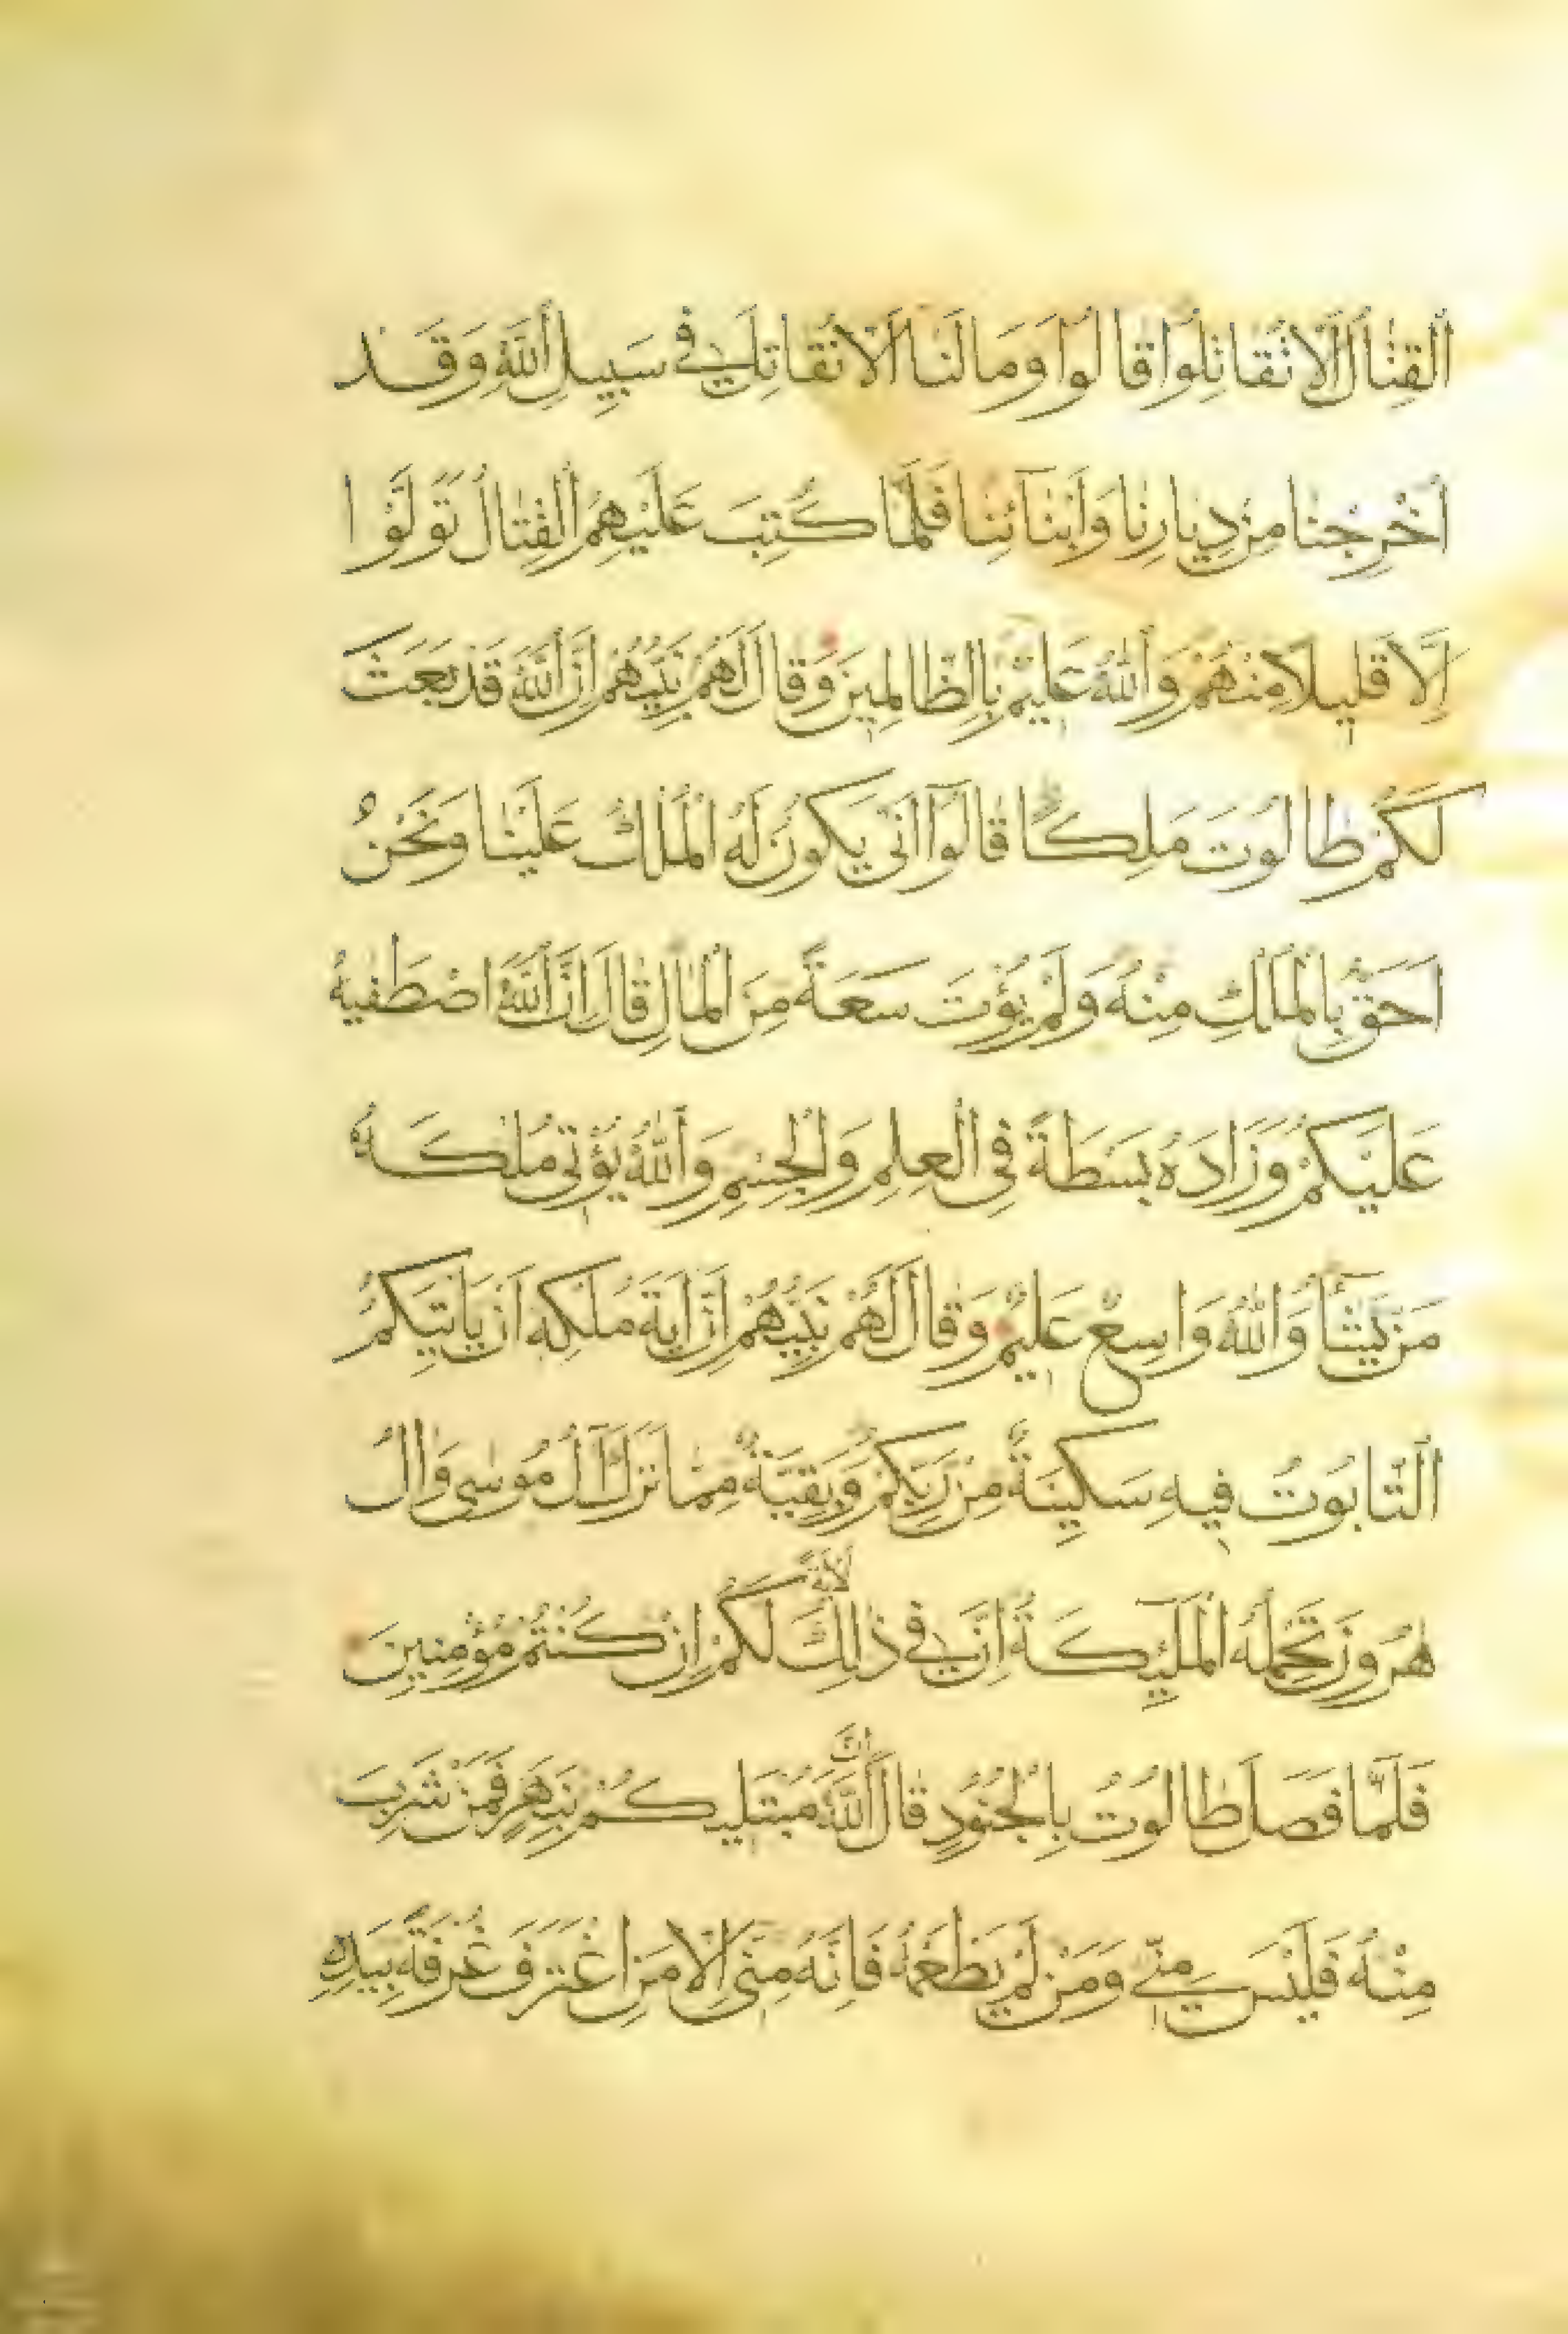 اَلْقِتٰالُ اَلّٰا تُقٰاتِلُوا قٰالُوا وَمٰا لَنٰا اَلّٰا نُقٰاتِلَ فِي سَبِيلِ اَللّٰهِ وَقَدْ
اُخْرِجْنٰا مِنْ دِيٰارِنٰا وَاَبْنٰائِنٰا فَلَمّٰا كُتِبَ عَلَيْهِمُ اَلْقِتٰالُ تَوَلَّوْا
اِلّٰا قَلِيلًا مِنْهُمْ وَاَللّٰهُ عَلِيمٌ بِالظّٰالِمِينَ وَقٰالَ لَهُمْ نَبِيُّهُمْ اِنَّ اَللّٰهَ قَدْ بَعَثَ
لَكُمْ طٰالُوتَ مَلِكًا قٰالُوا اَنّٰى يَكُونُ لَهُ الْمُلْكُ عَلَيْنٰا وَنَحْنُ
اَحَقُّ بِالْمُلْكِ مِنْهُ وَلَمْ يُؤْتَ سَعَةً مِنَ الْمٰالِ قٰالَ اِنَّ اَللّٰهَ اصْطَفٰيهُ
عَلَيْكُمْ وَزٰادَهُ بَسْطَةً فِي الْعِلْمِ وَالْجِسْمِ وَاَللّٰهُ يُؤْتِي مُلْكَهُ
مَنْ يَشٰٓاءُ وَاَللّٰهُ وٰاسِعٌ عَلِيمٌ وَقٰالَ لَهُمْ نَبِيُّهُمْ اِنَّ اٰيَةَ مُلْكِهِ اَنْ يَأْتِيَكُمُ
اَلتّٰابُوتُ فِيهِ سَكِينَةٌ مِنْ رَبِّكُمْ وَبَقِيَّةٌ مِمّٰا تَرَكَ اٰلُ مُوسٰى وَاٰلُ
هٰرُونَ تَحْمِلُهُ الْمَلٰٓئِكَةُ اِنَّ فِي ذٰلِكَ لَاٰيَةً لَكُمْ اِنْ كُنْتُمْ مُؤْمِنِينَ
فَلَمّٰا فَصَلَ طٰالُوتُ بِالْجُنُودِ قٰالَ اِنَّ اَللّٰهَ مُبْتَلِيكُمْ بِنَهَرٍ فَمَنْ شَرِبَ
مِنْهُ فَلَيْسَ مِنِّي وَمَنْ لَمْ يَطْعَمْهُ فَاِنَّهُ مِنِّي اِلّٰا مَنِ اغْتَرَفَ غُرْفَةً بِيَدِهِ